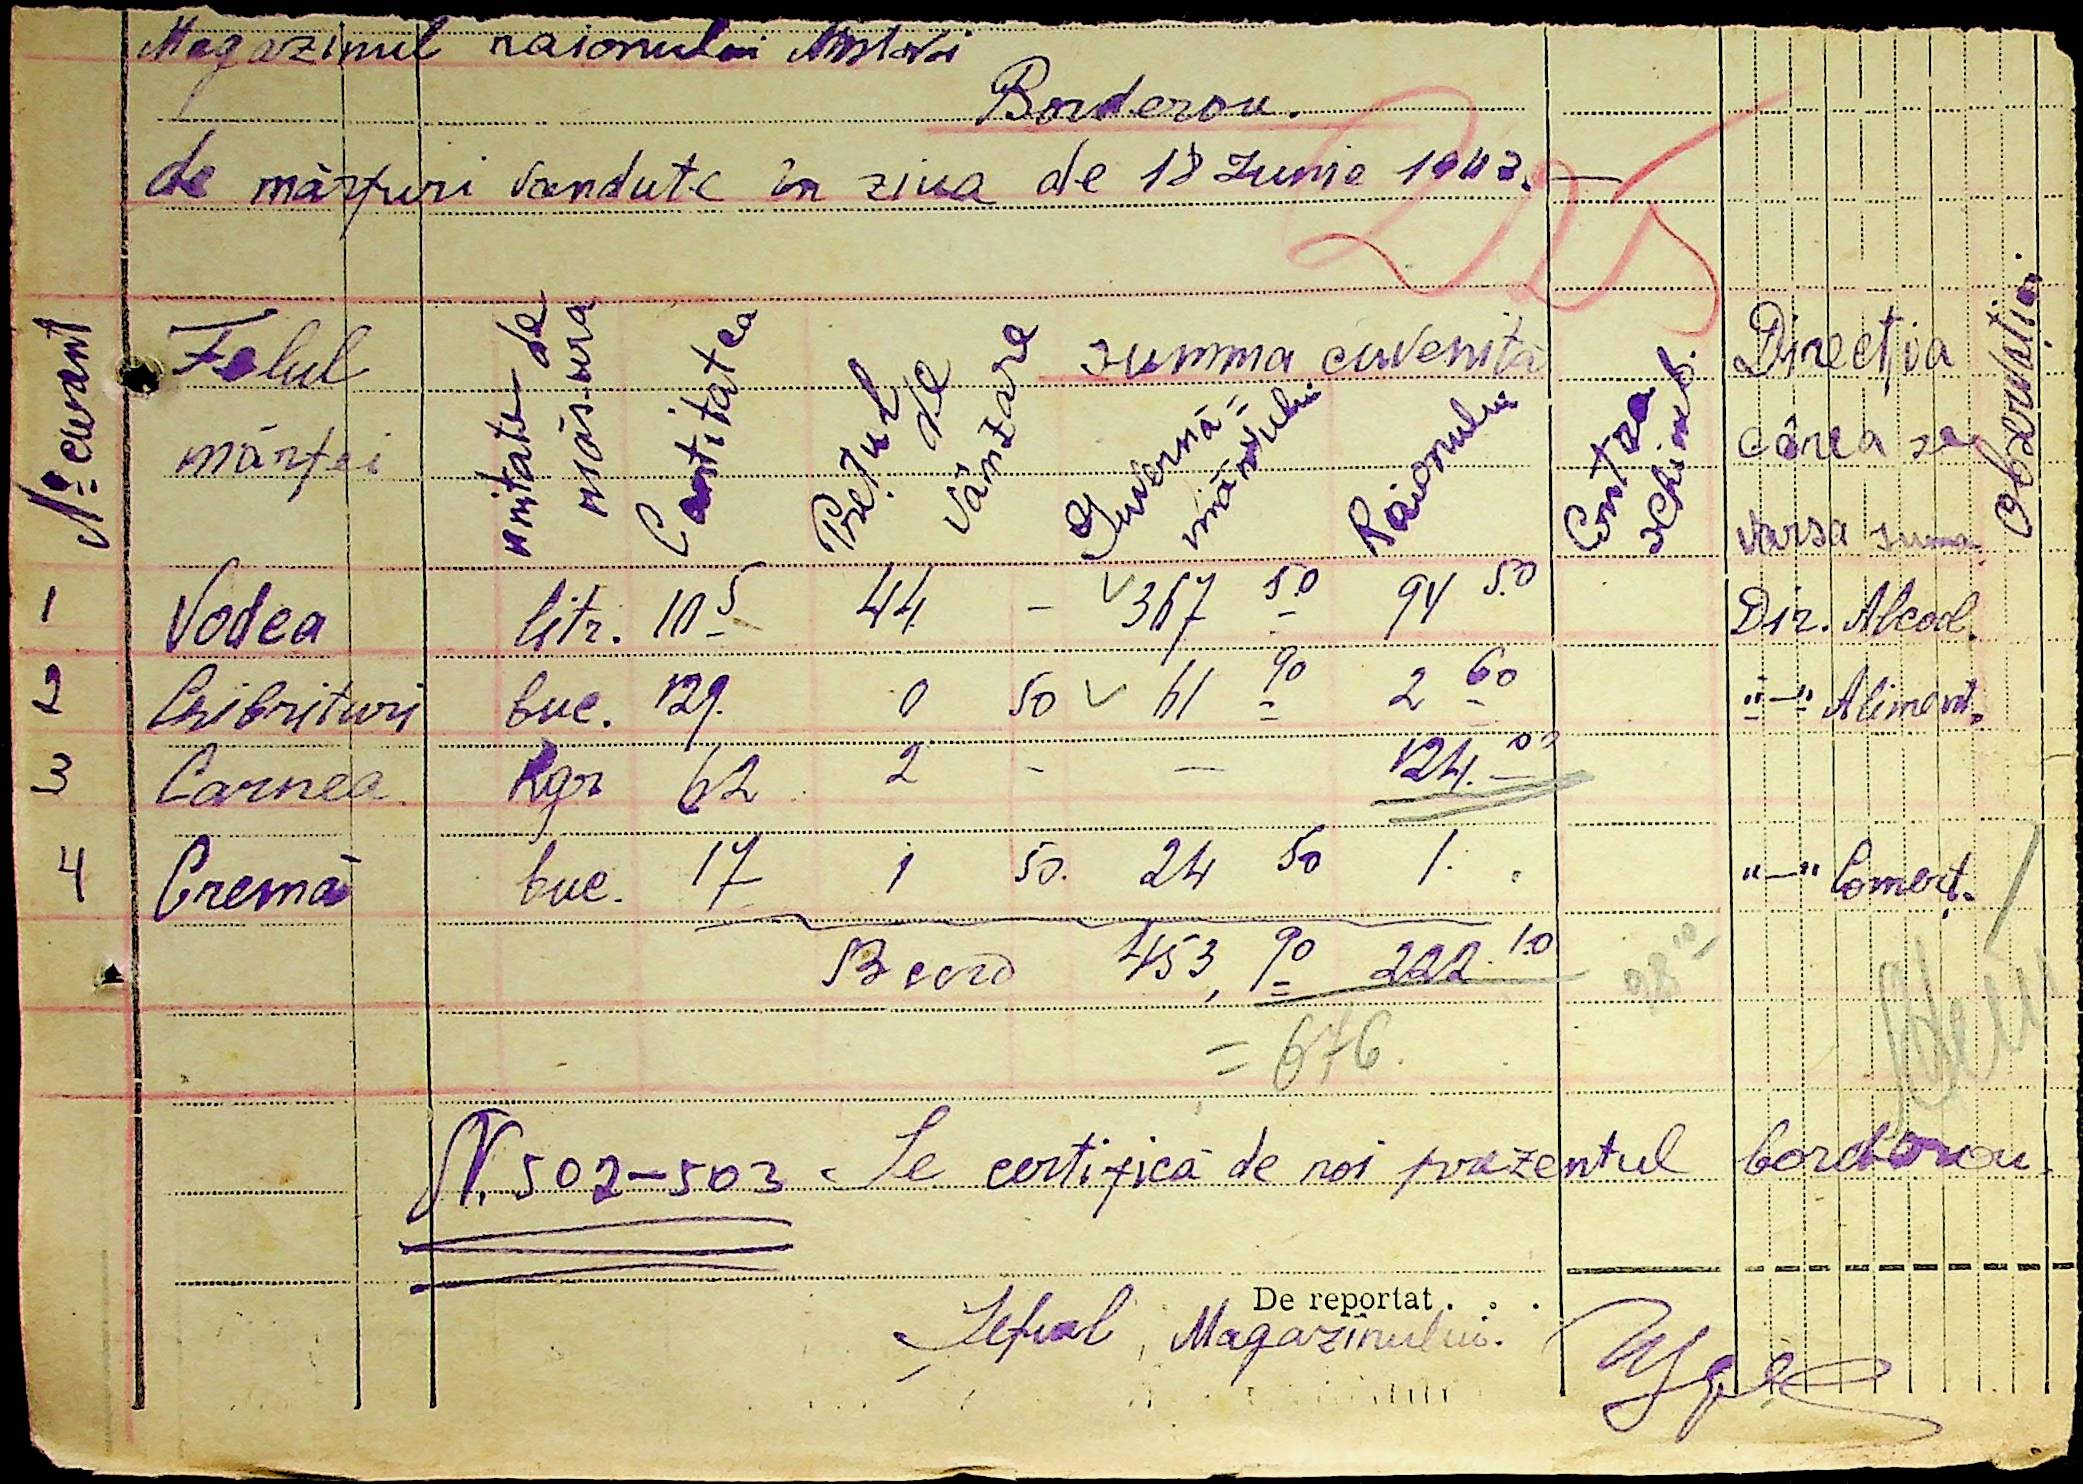 Magazinul raionului Mostovoi
Borderou.
de mărfuri vândute în ziua de 18 Iunie 1943. —
25
No curent
Felul mărfei
unitate de măsura
Cantitatea
Prețul de vânzare
summa cuvenită
Guvernă=mântului
Raionului
Contra schimb.
Direcția cărea se varsa suma
Observațiuni
1 Vodca litr. 10 5 44 – ✓367 50 94 50 Dir. Alcool.
2 Chibrituri buc. 129. 0 50 ✓ 61 90 2 60 "—" Aliment.
3 Carnea Kgr 62 2 – — 124. 00
4 Cremă buc. 17 1 50. 24 50 1. "—" Comerț.
453, 90 222. 10 98 10
= 676.
N. 502–503 Se certifică de noi prezentul borderou.
De reportat . . .
Șeful Magazinului.